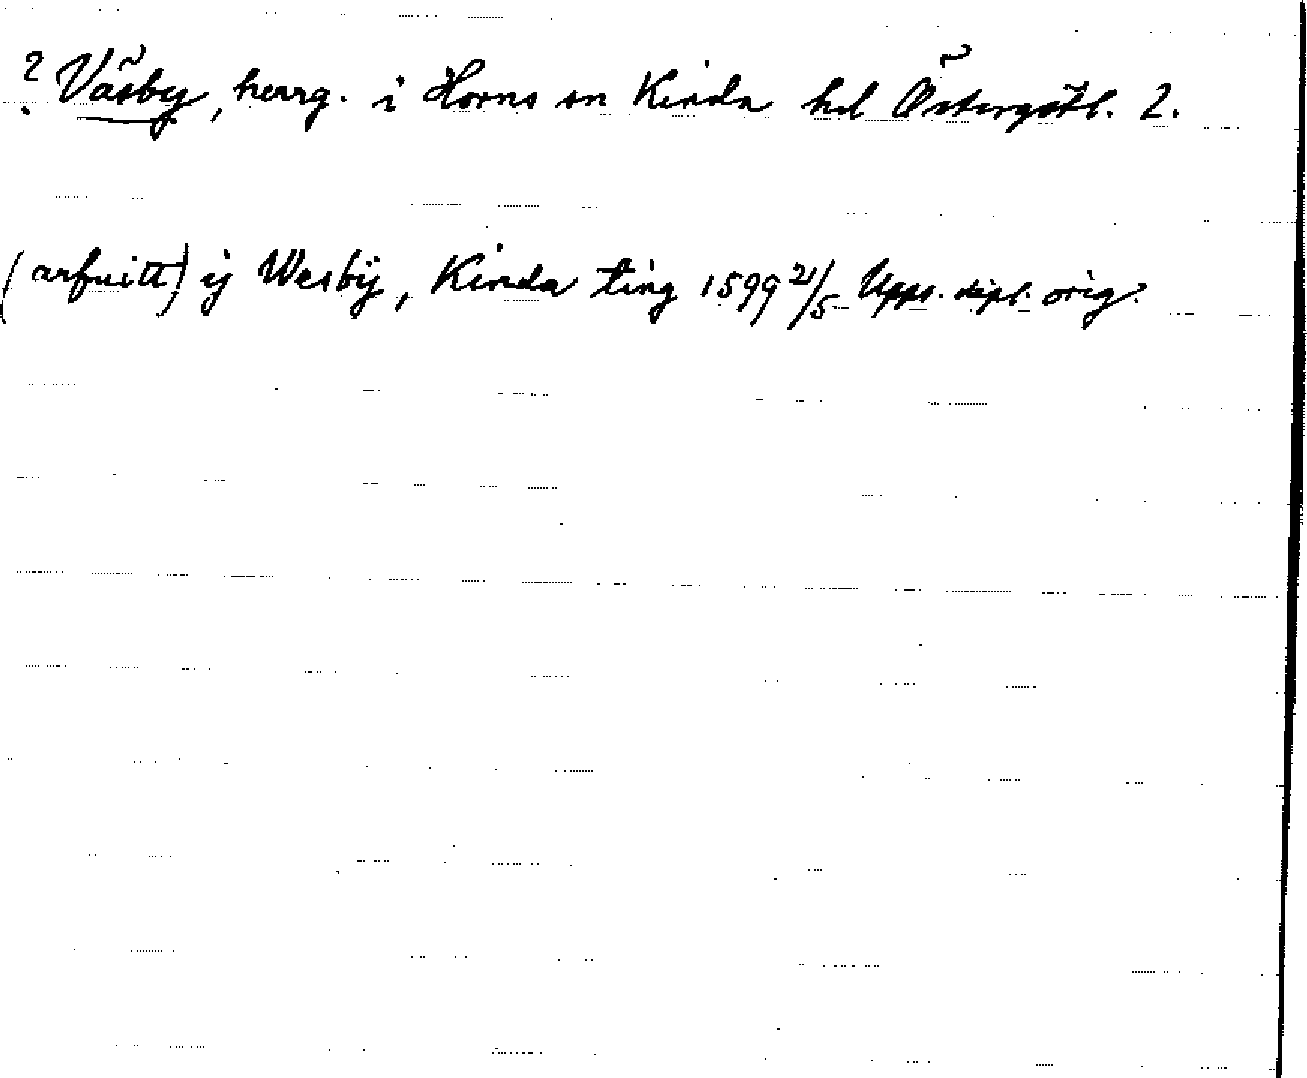 ? Väsby, herrg. i Horns sn Kinda hd Östergötl. 2.
(arfuitt) ij Wesbÿ, Kinda ting 1599 21/5 Upps. dipl. orig.